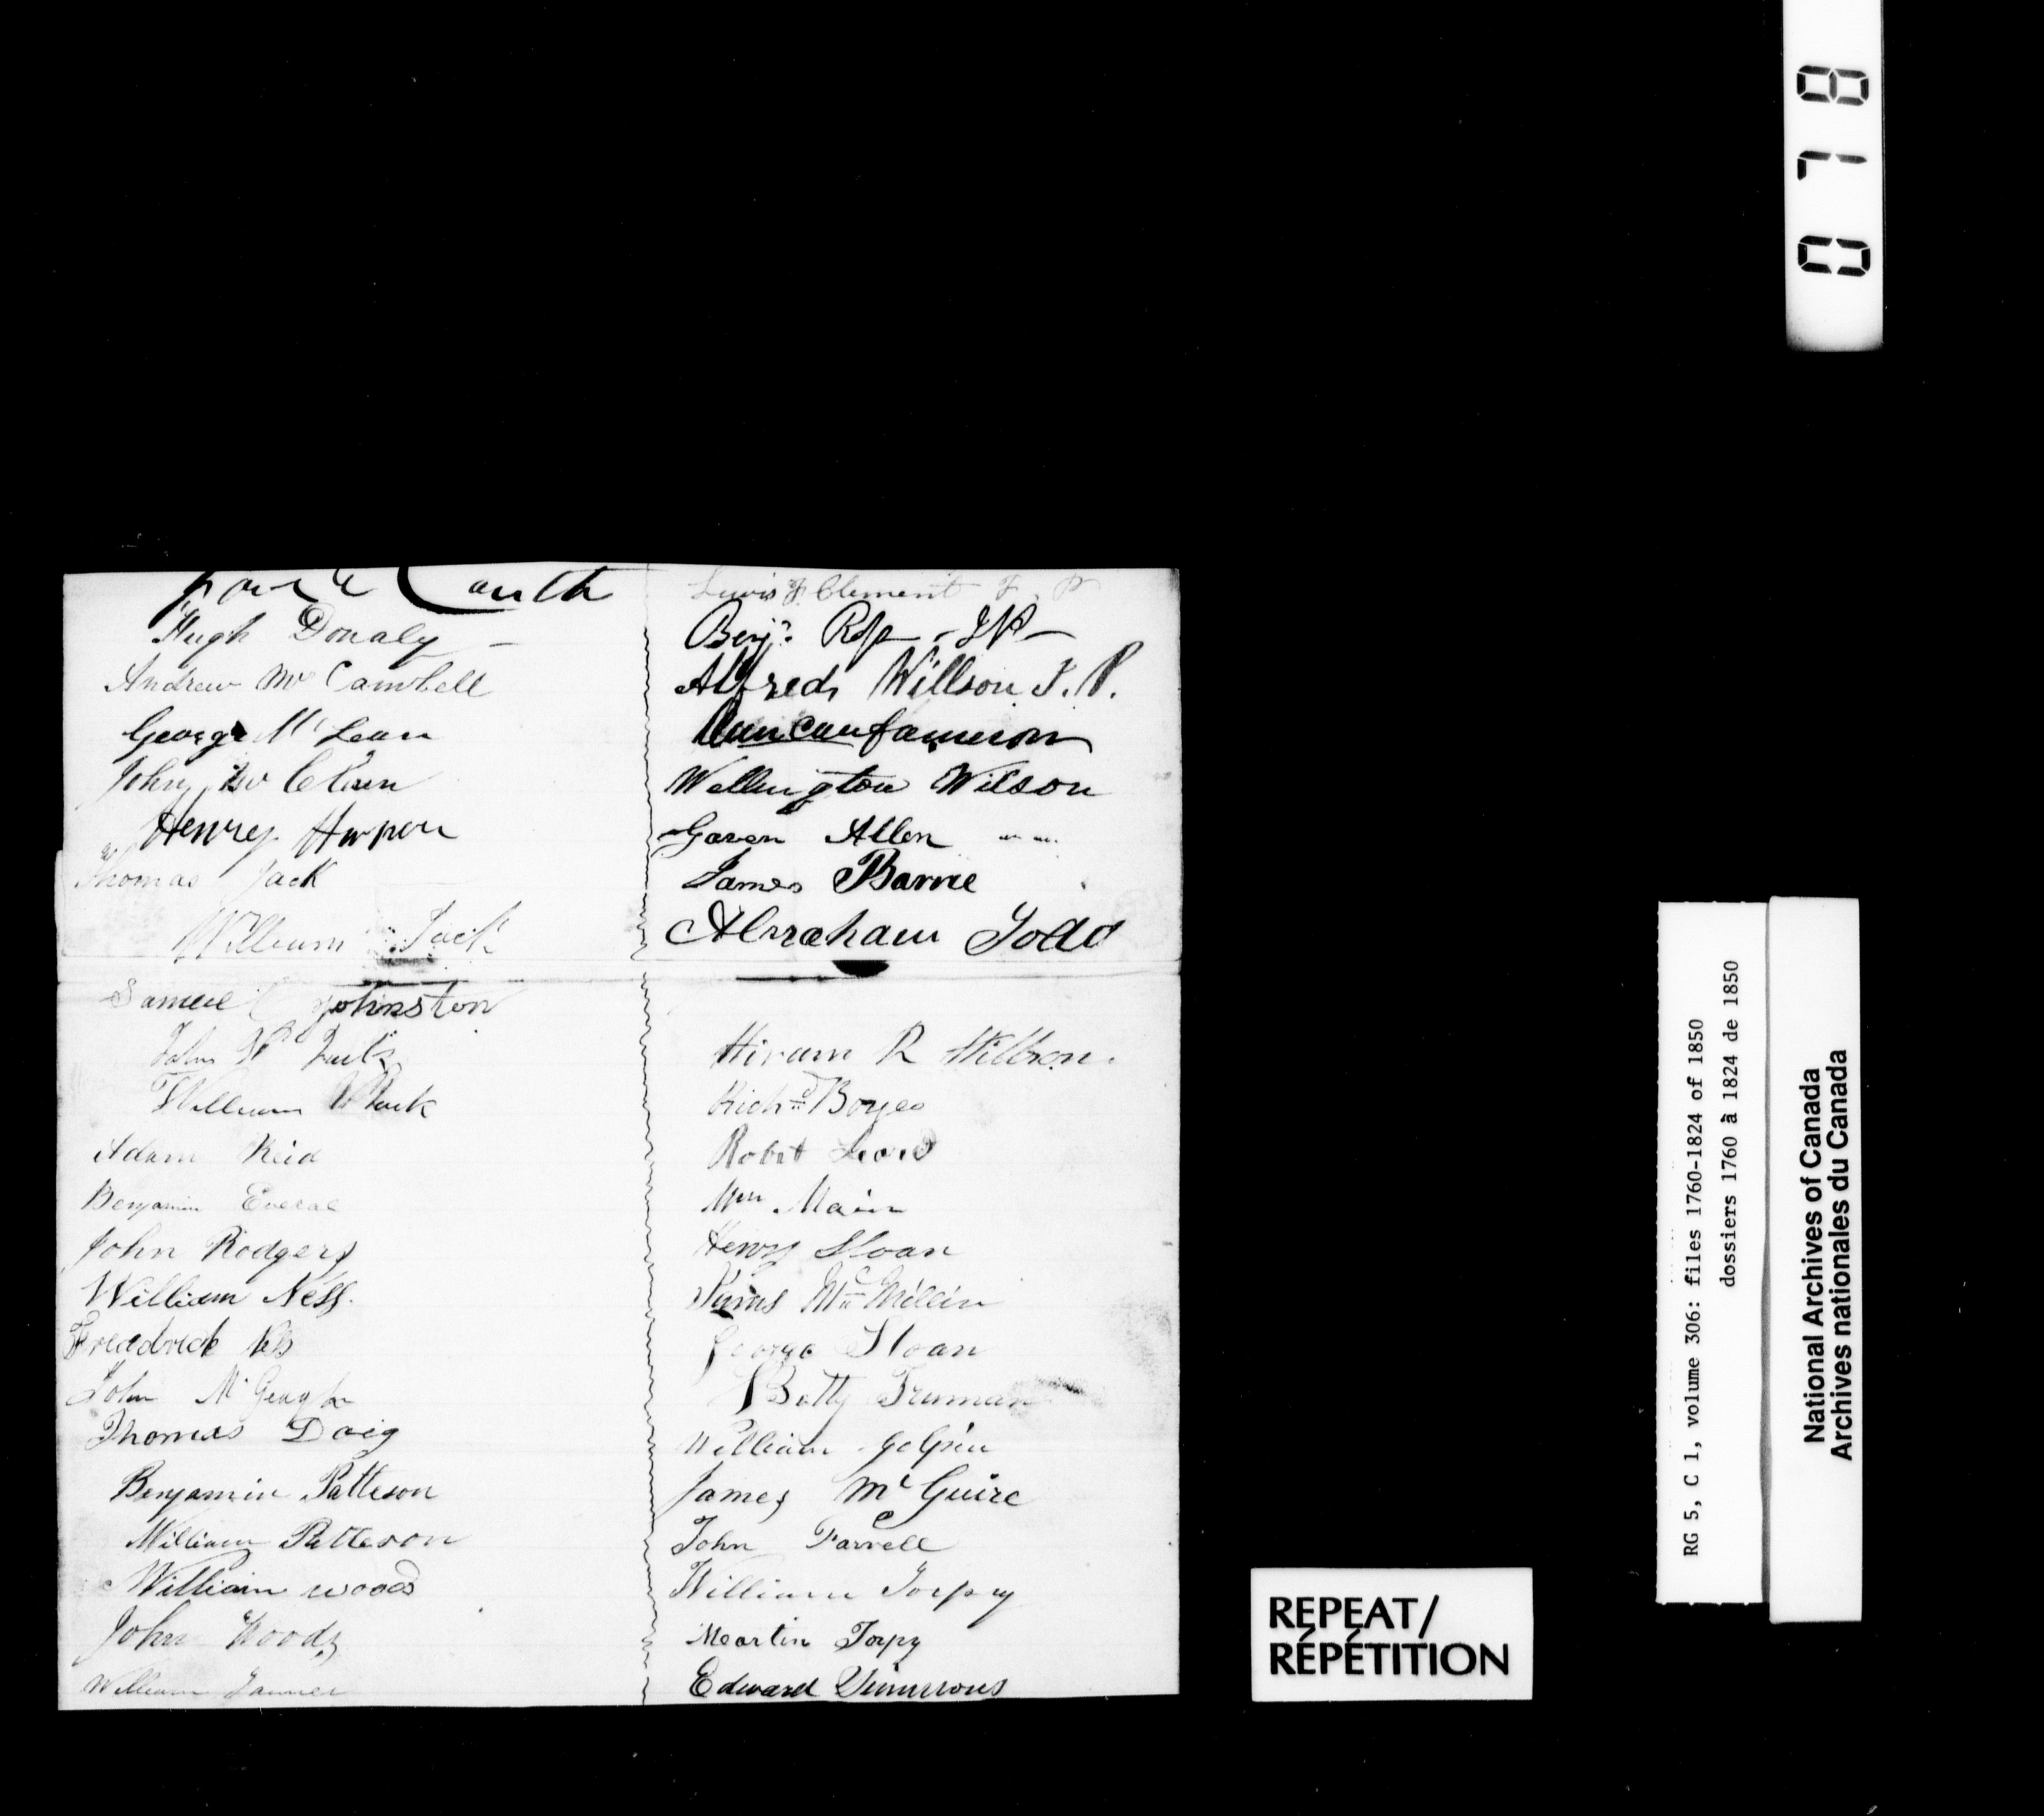 Hugh Donaly -
Andrew Mc Cambell
George Mc Lean
John Mc Clain
Henry Harper
Thomas Jack
William Jack
Samuel Johnston
John
William Black
Adam Reid
Benjamin
John Rodgers
William Ness.
Freadrick Ness
John McGeagh
Thomas Doig
Benjamin Patteson
William Patteson
William woods
John Woods
William
Lewis F. Clement J. P
Benjn. - JP -
Alfred Willson J. P.
Duncan Cameron
Wellington Wilson
Gaven Allen
James Barrie
Abraham Todd
Hiram R Willson.
Richd Boyes
Robet
Wm Main
Henry Sloan
James Mc Millin
George Sloan
Batty Truman
William
James Mc Guire
John Farrell
William Torpy
Martin Torpy
Edward
0 7 8
RG 5, C 1, volume 306: files 1760-1824 of 1850
dossiers 1760 à 1824 de 1850
National Archives of Canada
Archives nationales du Canada
REPEAT/
RÉPÉTITION